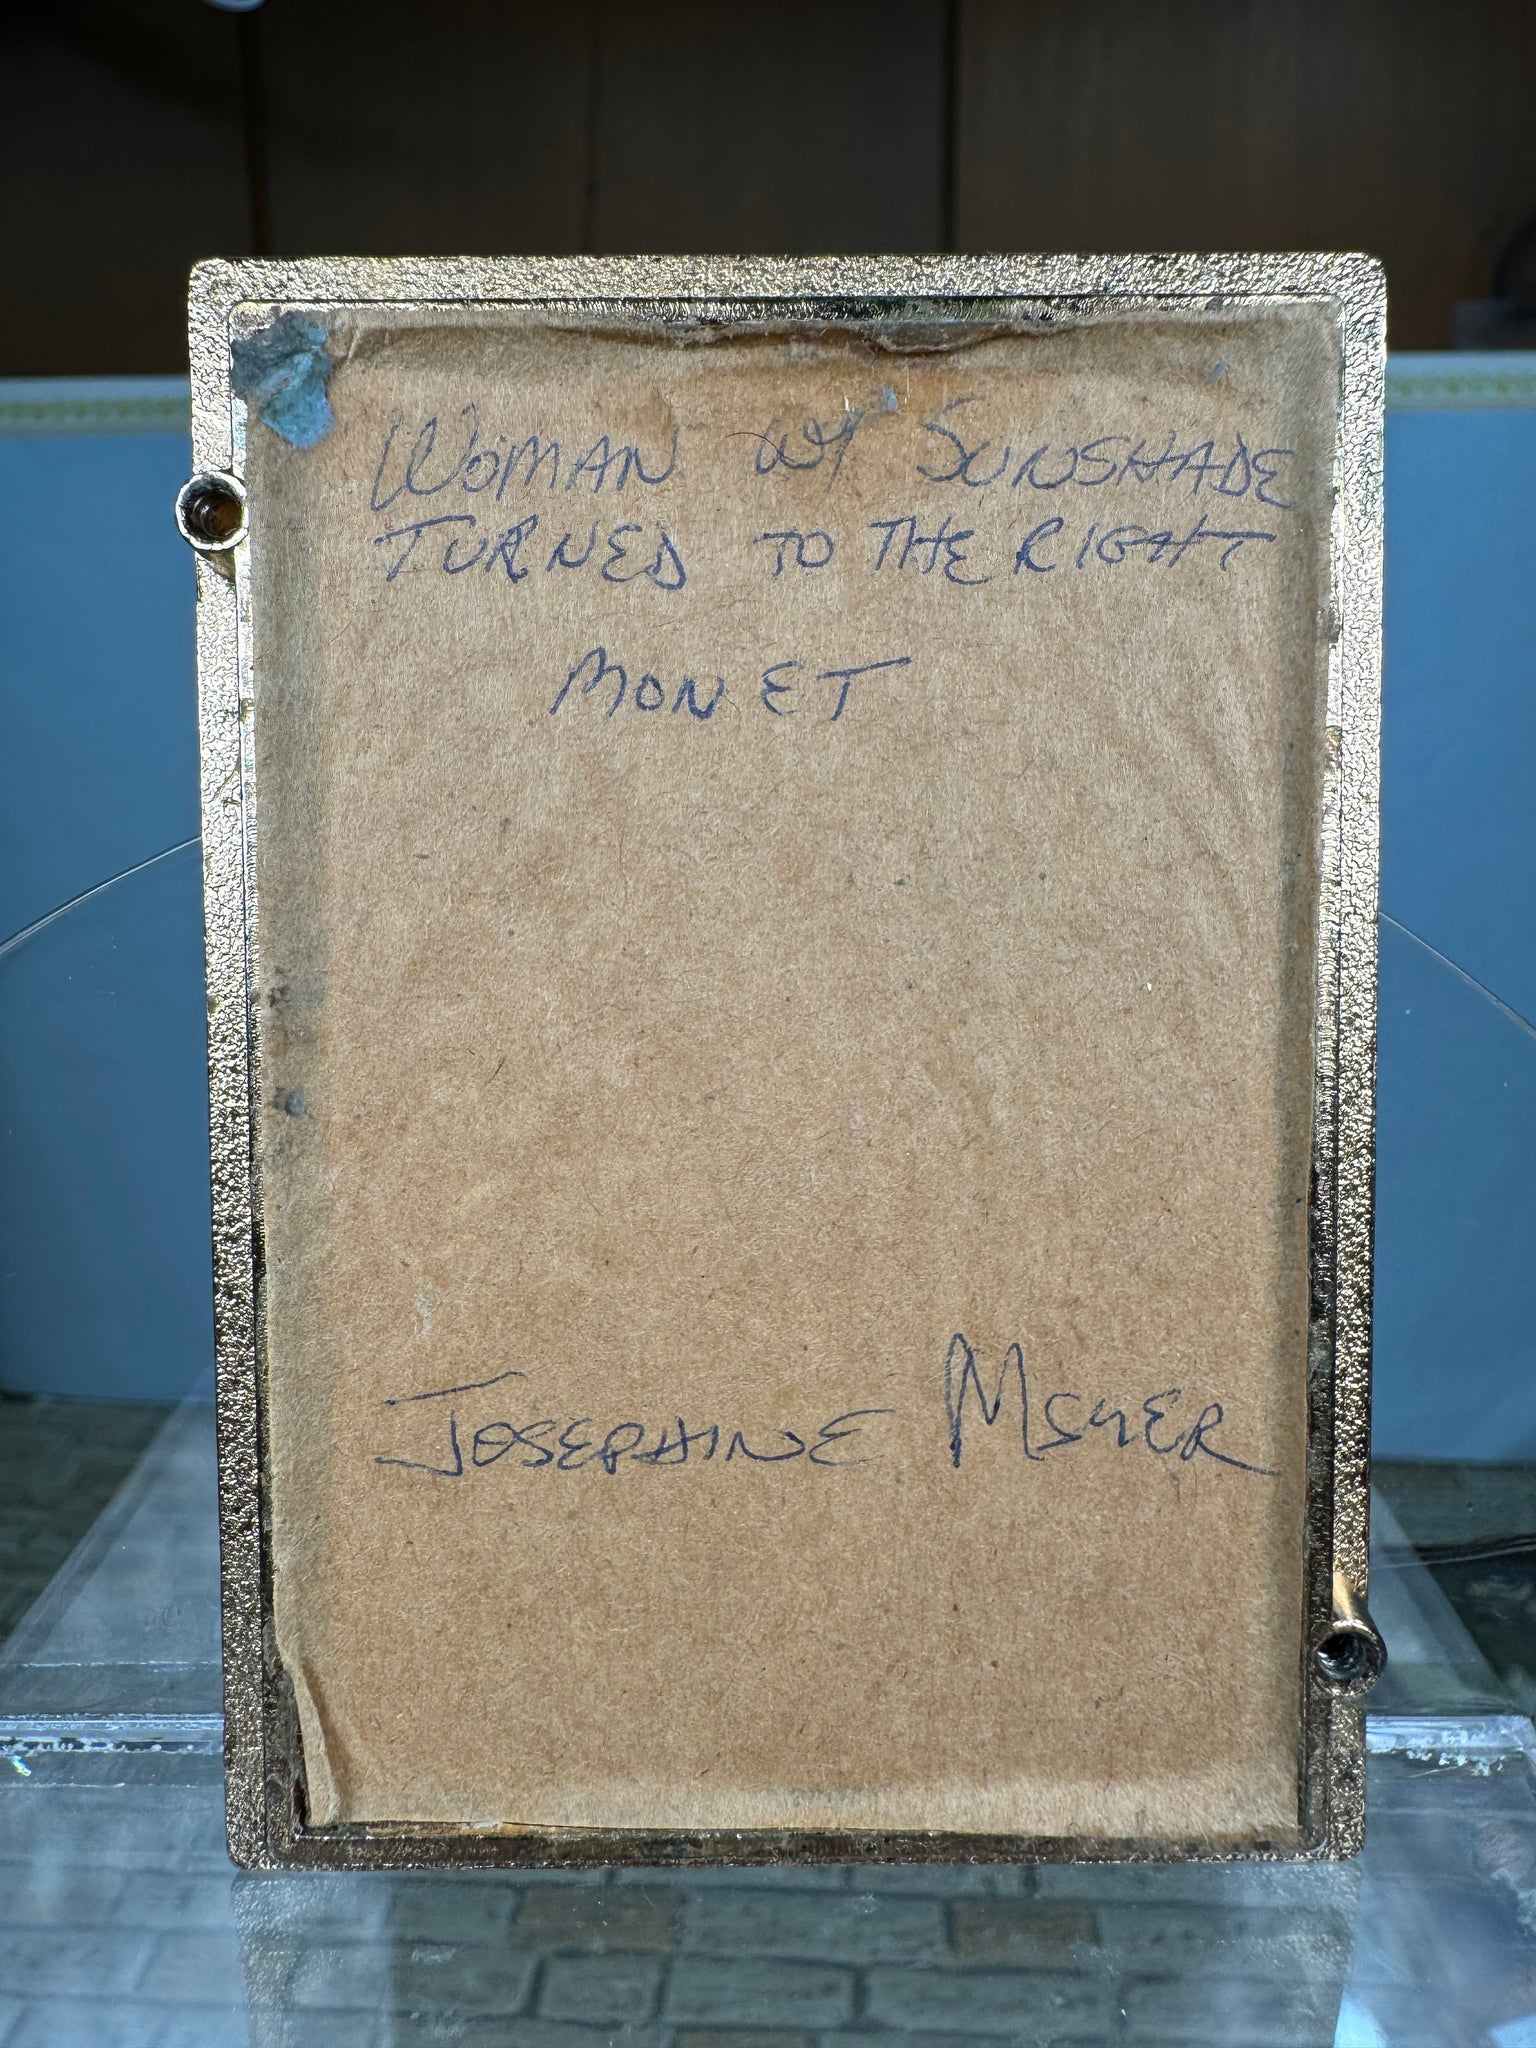 WOMAN W/ SUNSHADE
TURNED TO THE RIGHT
MONET
JOSEPHINE